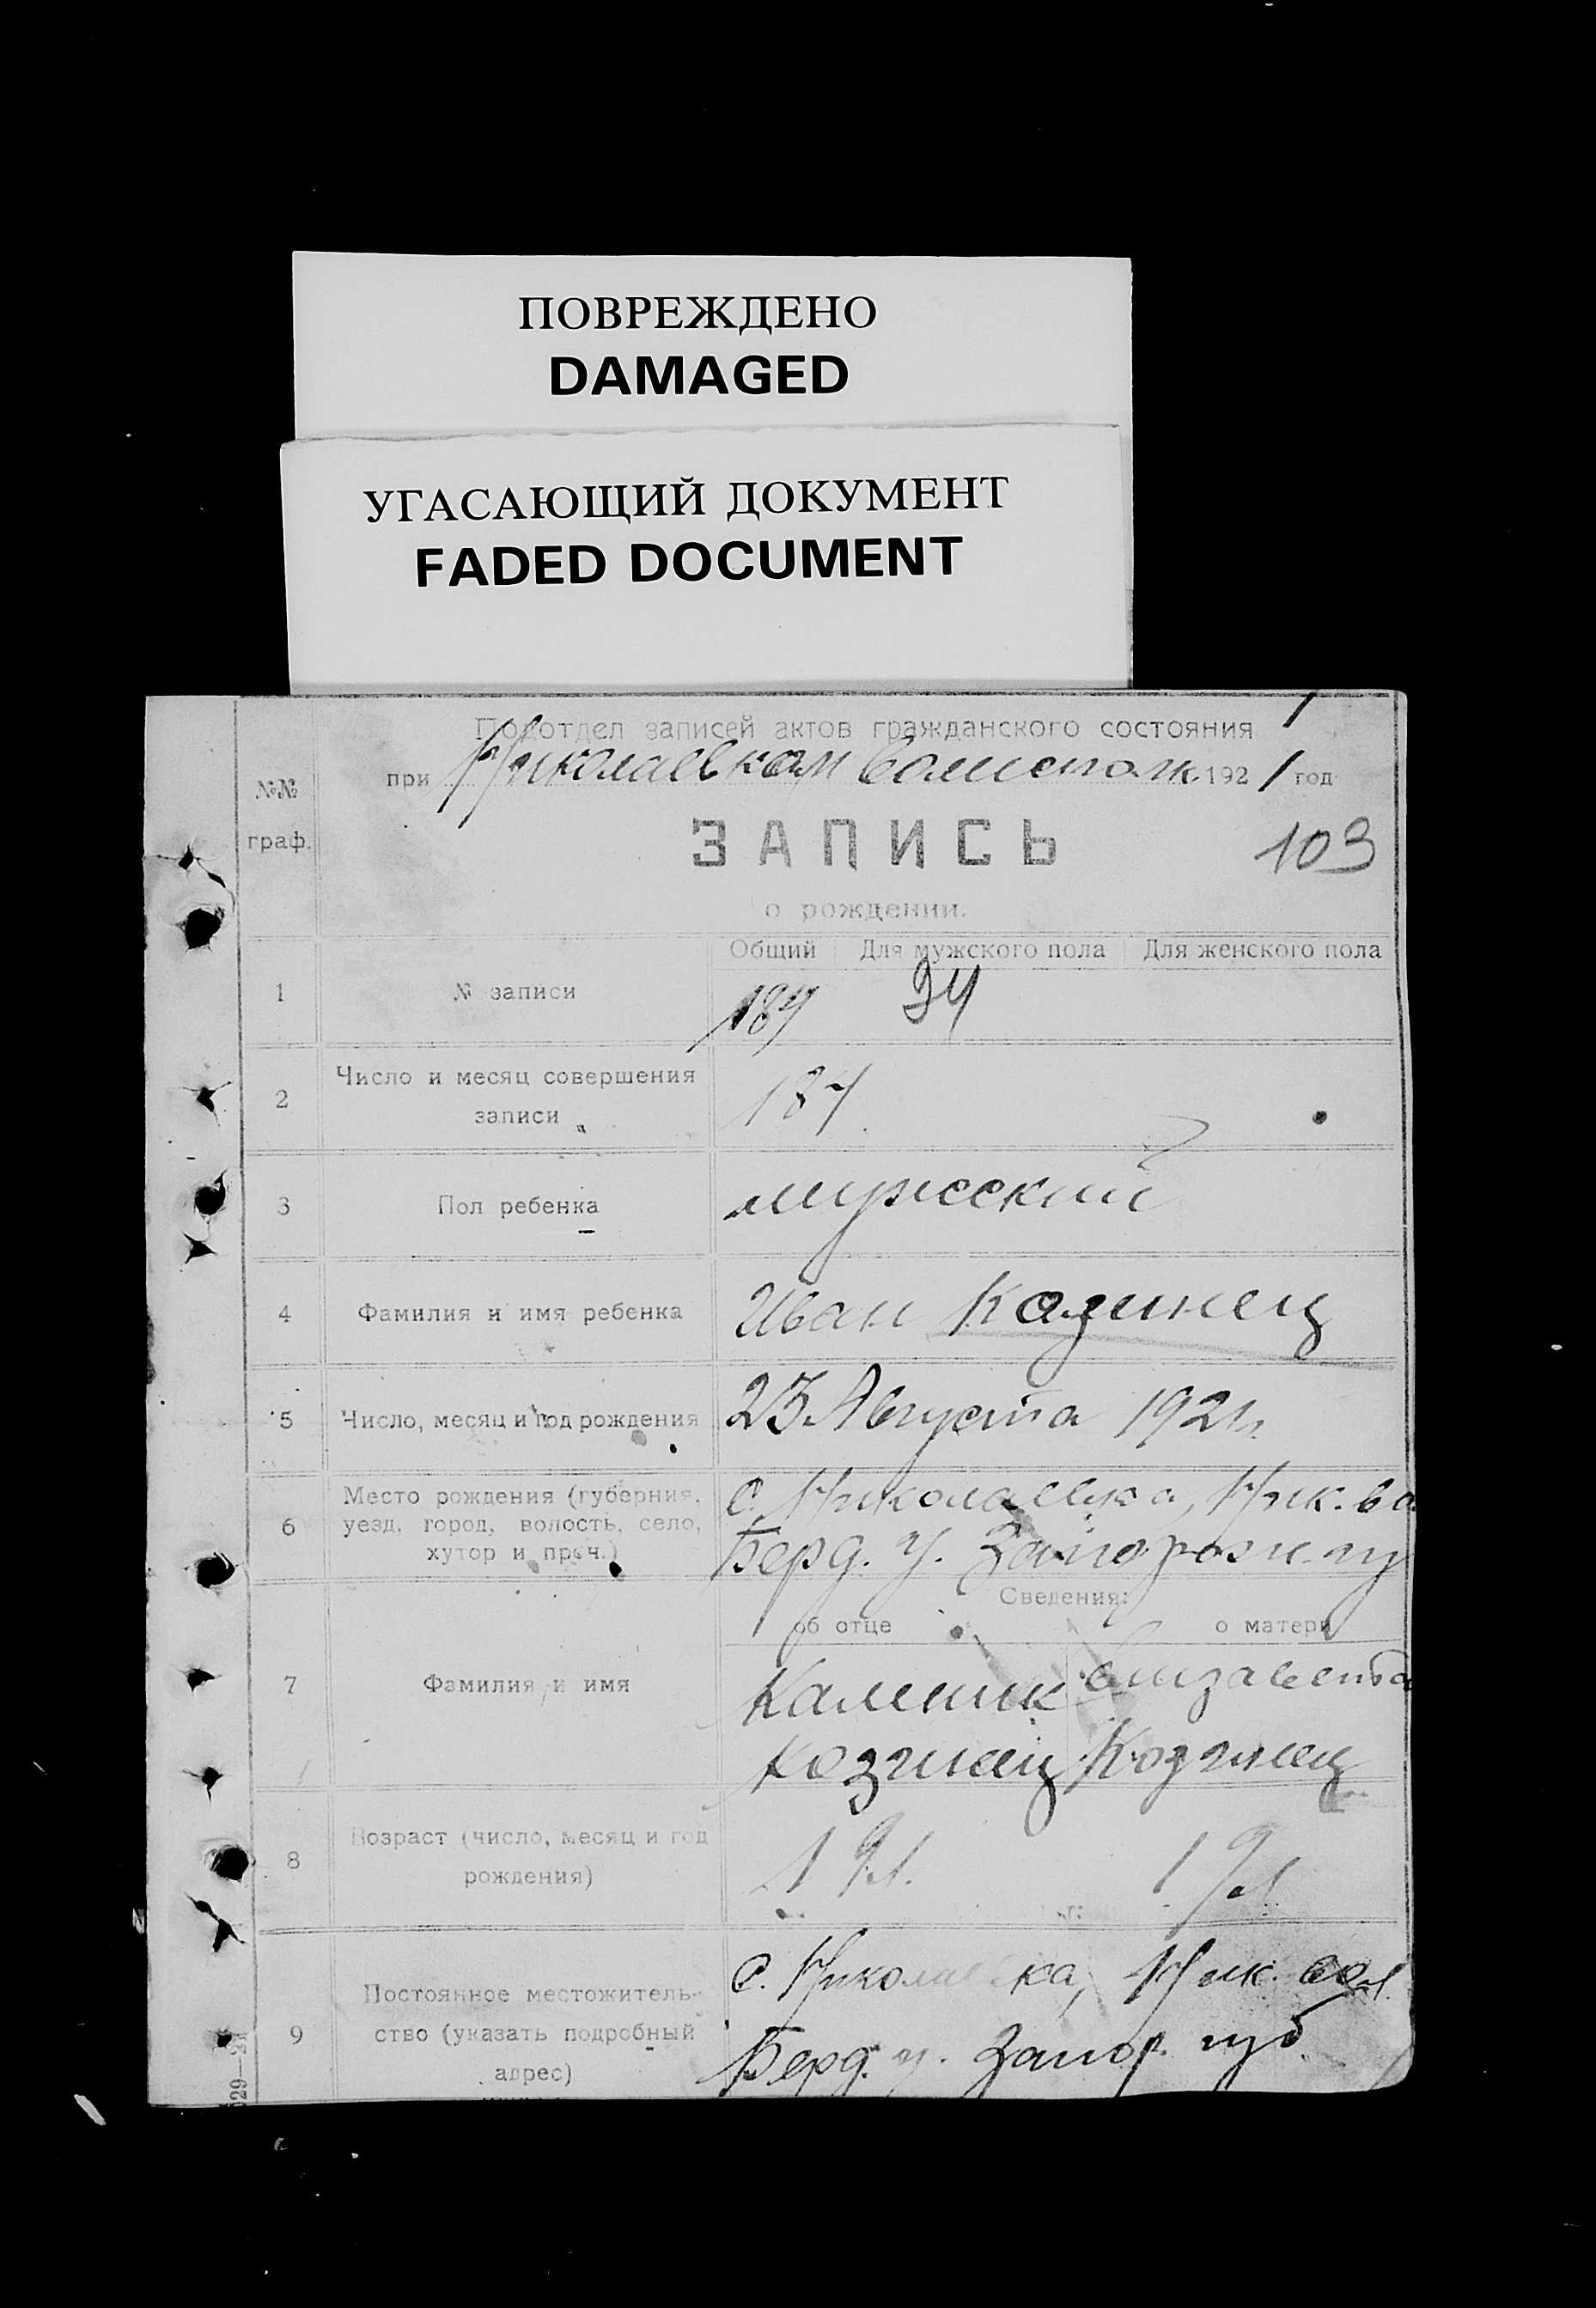 ПОВРЕЖДЕНО
DAMAGED
УГАСАЮЩИЙ ДОКУМЕНТ
FADED DOCUMENT
Подотдел записей актов гражданского состояния
при Николаевском 1921 год
№№
граф.
ЗАПИСЬ
103
о рождении.
Общий Для мужского пола Для женского пола
1 № записи 184 94
2 Число и месяц совершения
записи
184
3 Пол ребенка мужеский
4 Фамилия и имя ребенка Иван Казинец
5 Число, месяц и год рождения 23 Августа 1921 г.
6 Место рождения (губерния,
уезд, город, волость, село,
хутор и проч.)
С. Николаевка, Ник. во
Берд. у. Запорожн. гу
Сведения:
об отце о матери
7 Фамилия и имя
Каленик Елизавета
Козинец Козинец
8 Возраст (число, месяц и год
рождения)
9 Постоянное местожитель-
ство (указать подробный
адрес)
С. Николаевка, Ник. вол.
Берд. у. Запор. губ.